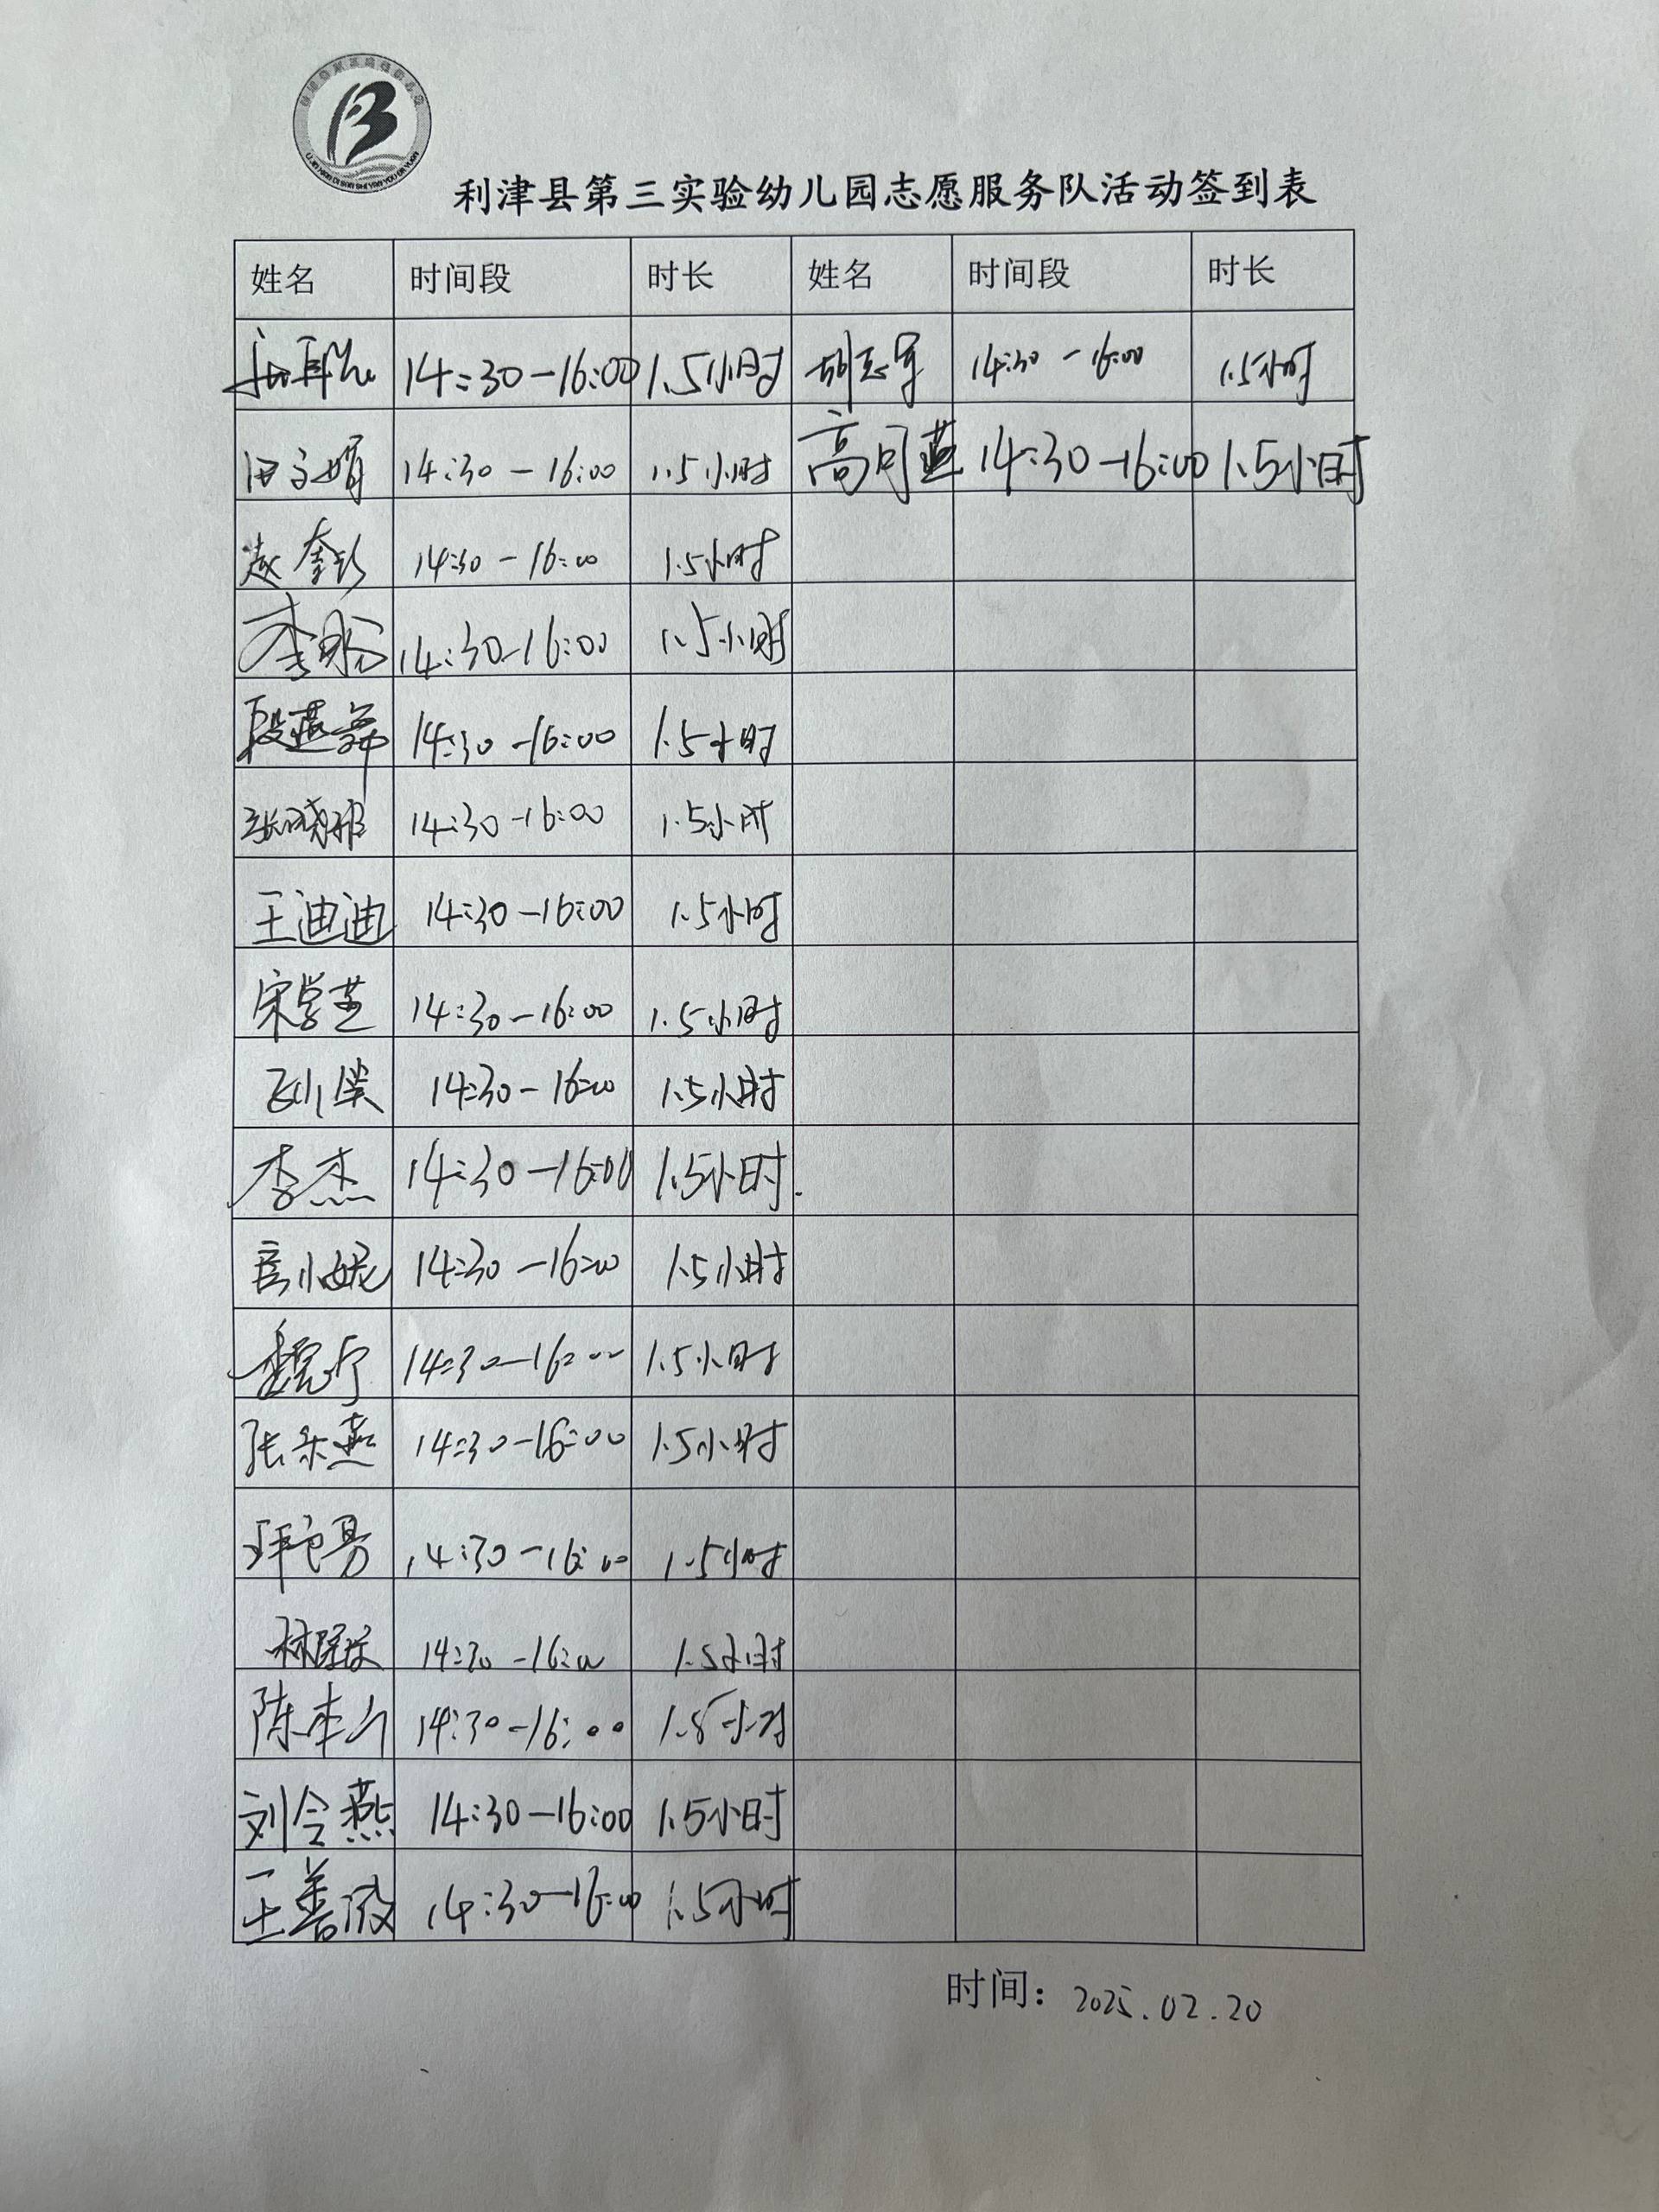 利津县第三实验幼儿园志愿服务队活动签到表
姓名 时间段 时长 姓名 时间段 时长
14:30-16:00 1.5小时 14:30-16:00 1.5小时
14:30-16:00 1.5小时 高月燕 14:30-16:00 1.5小时
14:30-16:00 1.5小时
14:30-16:00 1.5小时
段燕舞 14:30-16:00 1.5小时
14:30-16:00 1.5小时
王迪迪 14:30-16:00 1.5小时
宋学芝 14:30-16:00 1.5小时
14:30-16:00 1.5小时
李杰 14:30-16:00 1.5小时.
小妮 14:30-16:00 1.5小时
魏宁 14:30-16:00 1.5小时
张乐燕 14:30-16:00 1.5小时
14:30-16:00 1.5小时
14:30-16:00 1.5小时
陈 14:30-16:00 1.5小时
刘令燕 14:30-16:00 1.5小时
王善 14:30-16:00 1.5小时
时间：2025.02.20